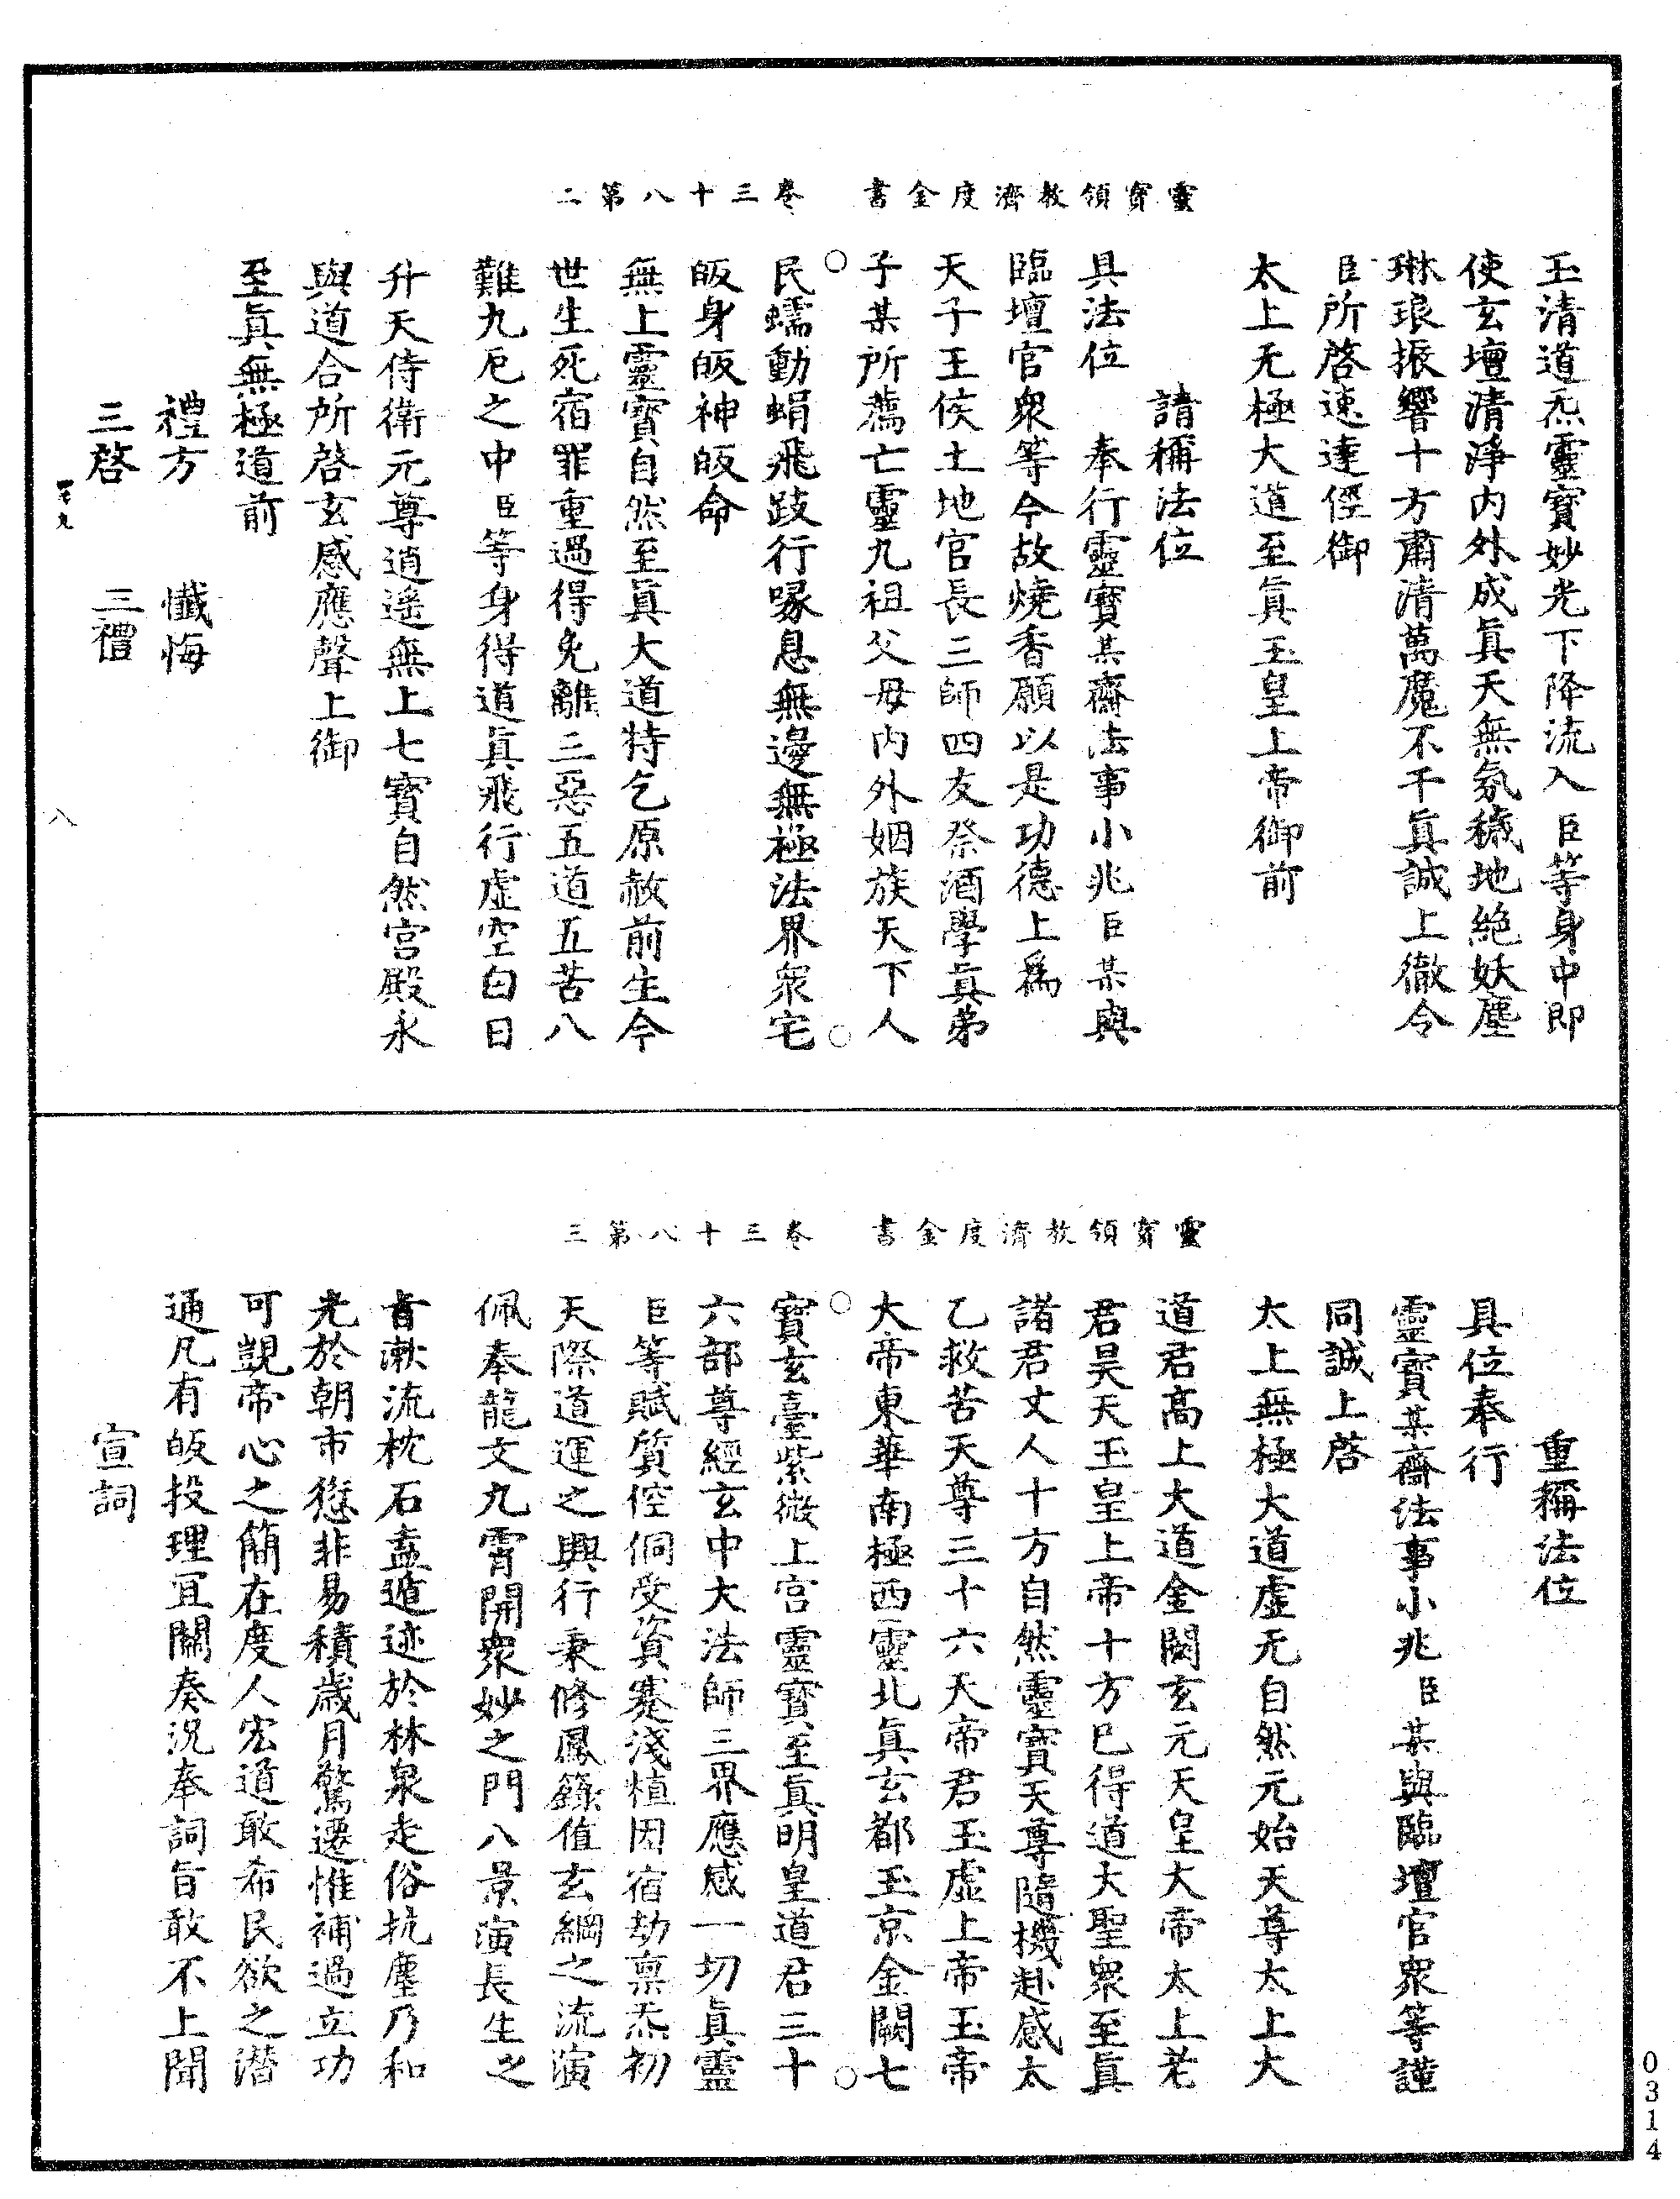 靈寶領教濟度金書 卷三十八第二
玉清道炁靈寶妙光下降流入臣等身中即
使玄壇清淨內外成眞天無氛穢地絕妖塵
琳琅振響十方肅清萬魔不干眞誠上徹令
臣所啓速達徑御
太上无極大道至眞玉皇上帝御前
請稱法位
具法位 奉行靈寶某齋法事小兆臣某與
臨壇官衆等今故燒香願以是功德上爲
天子王侯土地官長三師四友祭酒學眞弟
子某所薦亡靈九祖父母內外姻族天下人
民蠕動蜎飛跂行喙息無邊無極法界衆宅
皈身皈神皈命
無上靈寶自然至眞大道特乞原赦前生今
世生死宿罪重過得免離三惡五道五苦八
難九厄之中臣等身得道眞飛行虛空白日
升天侍衛元尊逍遙無上七寶自然宮殿永
與道合所啓玄感應聲上御
至眞無極道前
禮方 懺悔
三啓 三禮
八
靈寶領教濟度金書 卷三十八第三
重稱法位
具位奉行
靈寶某齋法事小兆臣某與臨壇官衆等謹
同誠上啓
太上無極大道虛无自然元始天尊太上大
道君高上大道金闕玄元天皇大帝太上老
君昊天玉皇上帝十方巳得道大聖衆至眞
諸君丈人十方自然靈寶天尊隨機赴感太
乙救苦天尊三十六天帝君玉虛上帝玉帝
大帝東華南極西靈北眞玄都玉京金闕七
寶玄臺紫微上宮靈寶至眞明皇道君三十
六部尊經玄中大法師三界應感一切眞靈
臣等賦質倥侗受資蹇淺植因宿劫稟炁初
天際道運之興行秉修鳳籙值玄綱之流演
佩奉龍文九霄開衆妙之門八景演長生之
旨漱流枕石盍遁迹於林泉走俗抗塵乃和
光於朝市愆非易積歲月驚遷惟補過立功
可覬帝心之簡在度人宏道敢希民欲之潛
通凡有皈投理宜關奏況奉詞旨敢不上聞
宣詞
0314